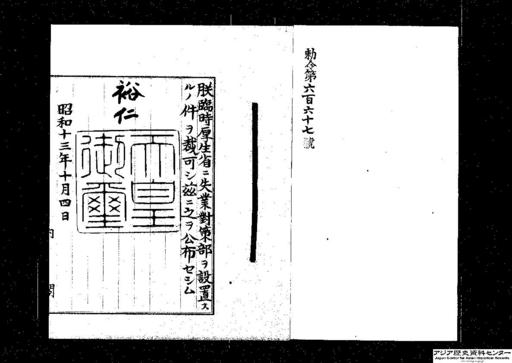 勅令第六百六十七號
朕臨時厚生省ニ失業對策部ヲ設置ス
ルノ件ヲ裁可シ茲ニ之ヲ公布セシム
裕仁
天皇
御璽
昭和十三年十月四日
内閣
アジア歴史資料センター
Japan Center for Asian Historical Records